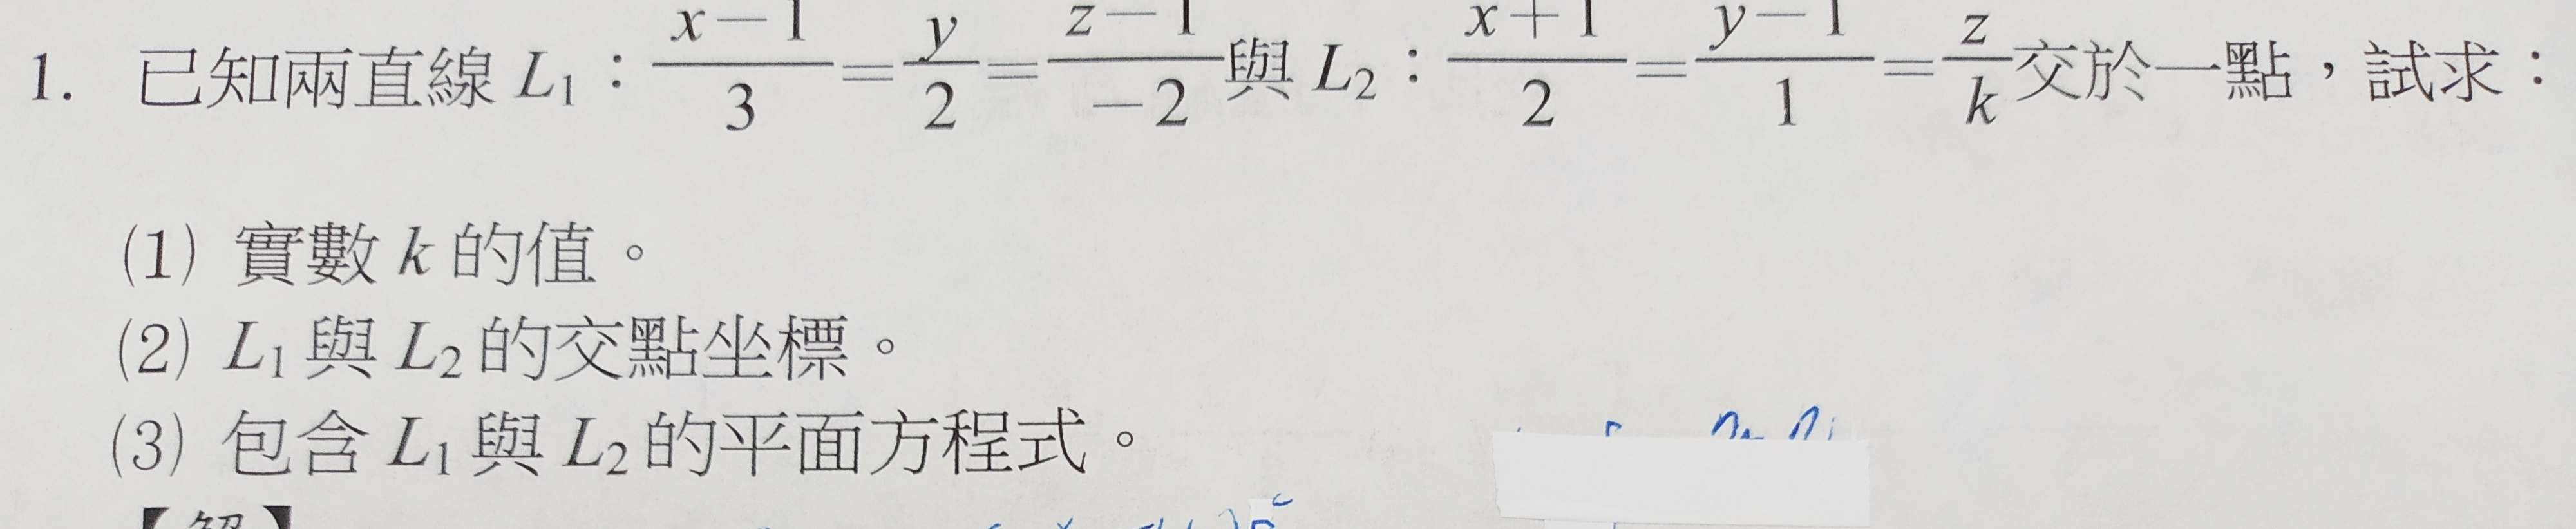 1. 已知兩直線 L₁：(x−1)/3＝y/2＝(z−1)/−2 與 L₂：(x+1)/2＝(y−1)/1＝z/k 交於一點，試求：
(1) 實數 k 的值。
(2) L₁ 與 L₂ 的交點坐標。
(3) 包含 L₁ 與 L₂ 的平面方程式。
【解】